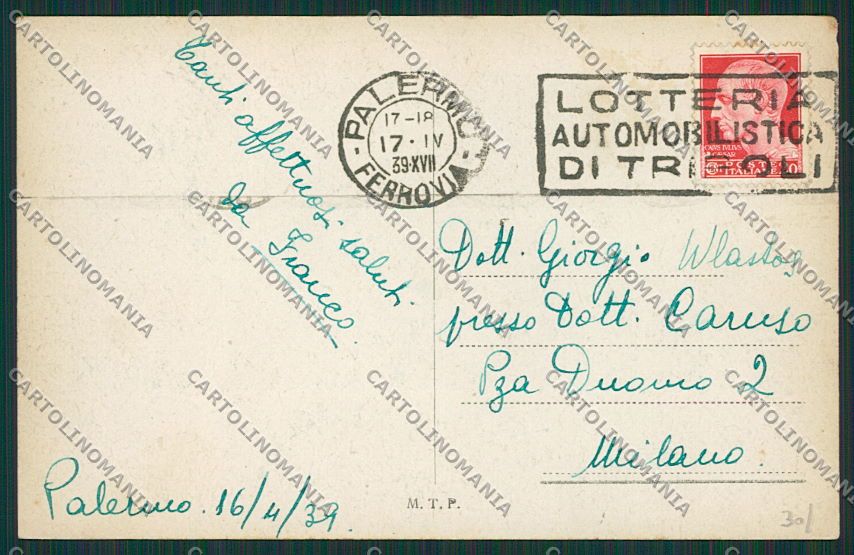 Tanti affettuosi saluti
da Franco.
Palermo 16/4/39.
PALERMO
17-18
17·IV
39·XVII
FERROVIA
LOTTERIA
AUTOMOBILISTICA
DI TRIPOLI
POSTE
ITALIANE 20
Dott. Giorgio Wlastos
presso Dott. Caruso
Pza Duomo 2
Milano.
M. T. P.
30/
CARTOLINOMANIA